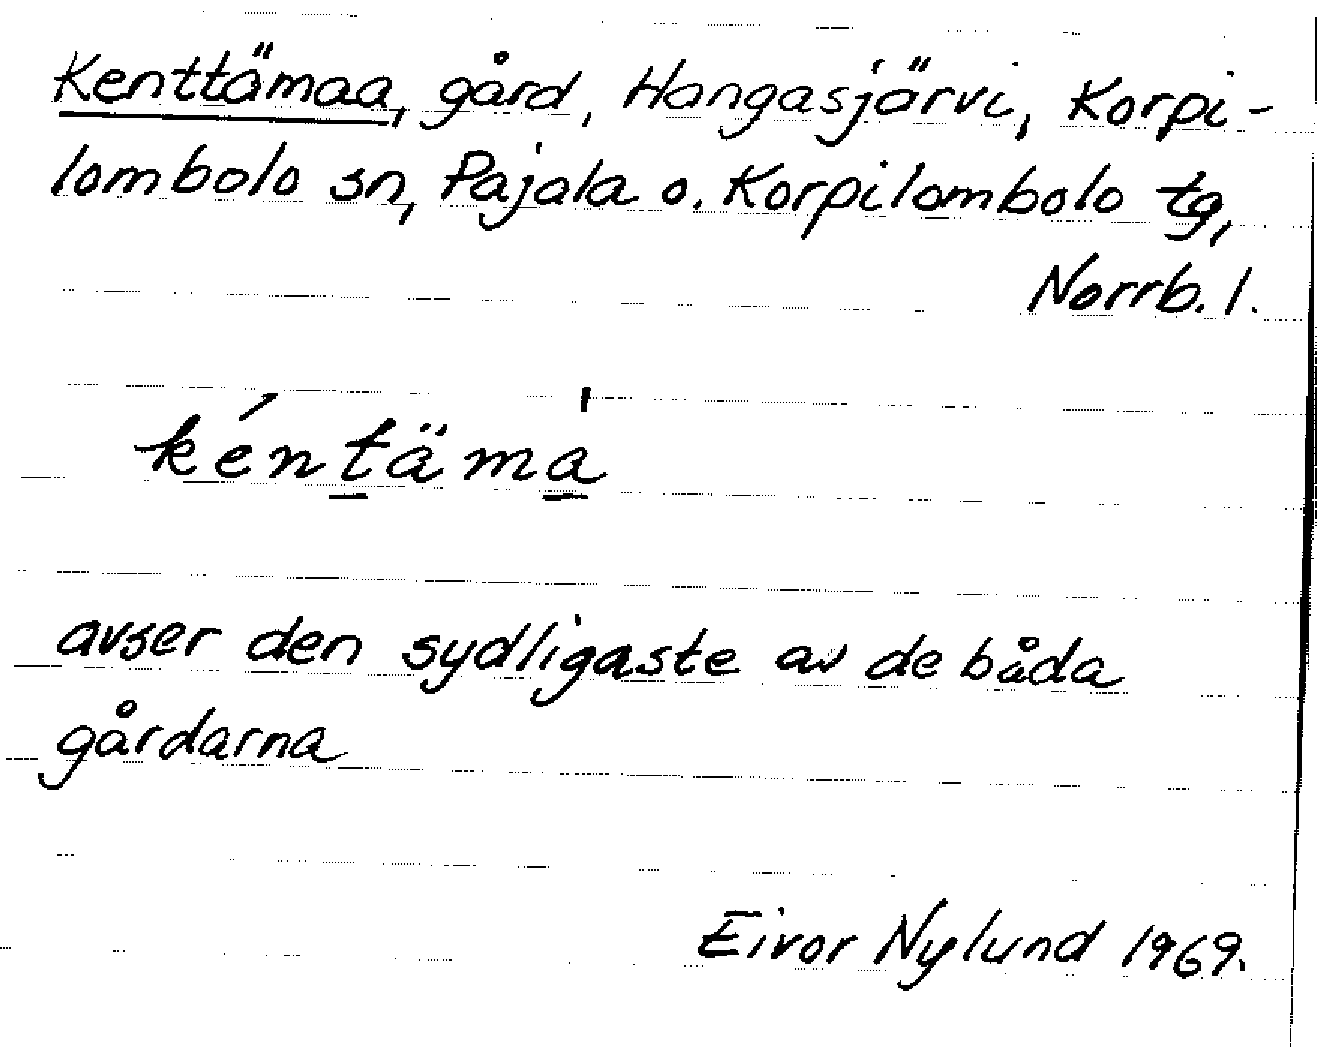 Kenttämaa, gård, Hangasjärvi, Korpi-
lombolo sn, Pajala o. Korpilombolo tg,
Norrb. l.
kéntämà
avser den sydligaste av de båda
gårdarna
Eivor Nylund 1969.